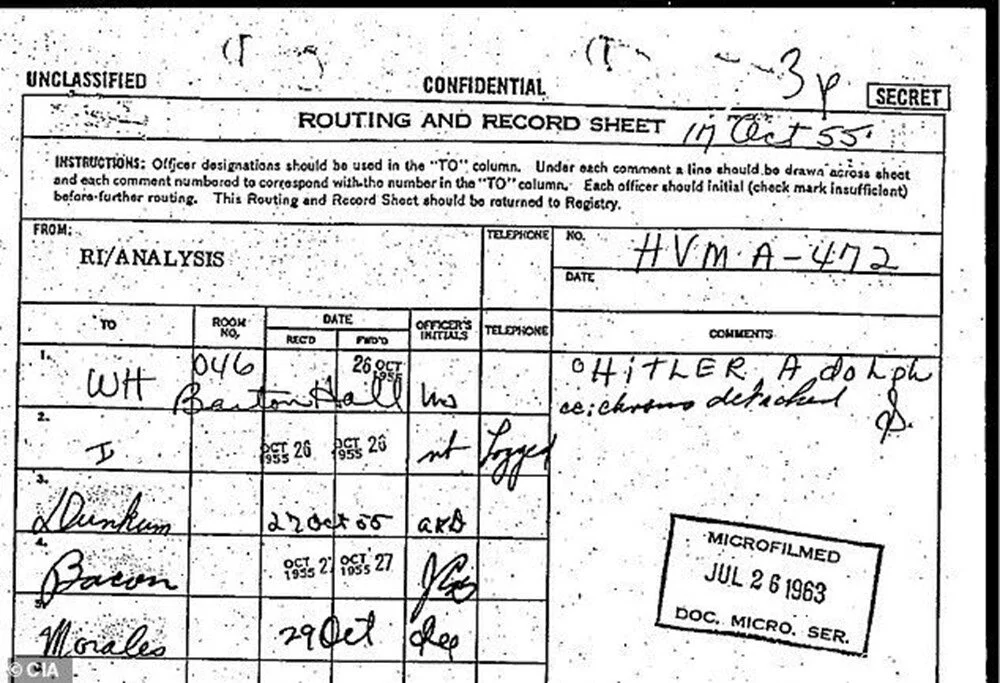 3p
UNCLASSIFIED CONFIDENTIAL SECRET
ROUTING AND RECORD SHEET 17 Oct 55
INSTRUCTIONS: Officer designations should be used in the "TO" column. Under each comment a line should be drawn across sheet
and each comment numbered to correspond with the number in the "TO" column. Each officer should initial (check mark insufficient)
before further routing. This Routing and Record Sheet should be returned to Registry.
FROM: TELEPHONE NO. HVM.A-472
RI/ANALYSIS
DATE
TO ROOM NO. DATE OFFICER'S INITIALS TELEPHONE COMMENTS
REC'D FWD'D
1. WH 046 26 OCT 1955 HiTLER Adolph
Barton Hall cc: chrono detached
2. I OCT 26 1955 OCT 26 1955 nt Logged
3. Dunkum 27 Oct 55 akD
4. Bacon OCT 27 1955 OCT 27 1955
5. Morales 29 Oct
MICROFILMED
JUL 26 1963
DOC. MICRO. SER.
© CIA